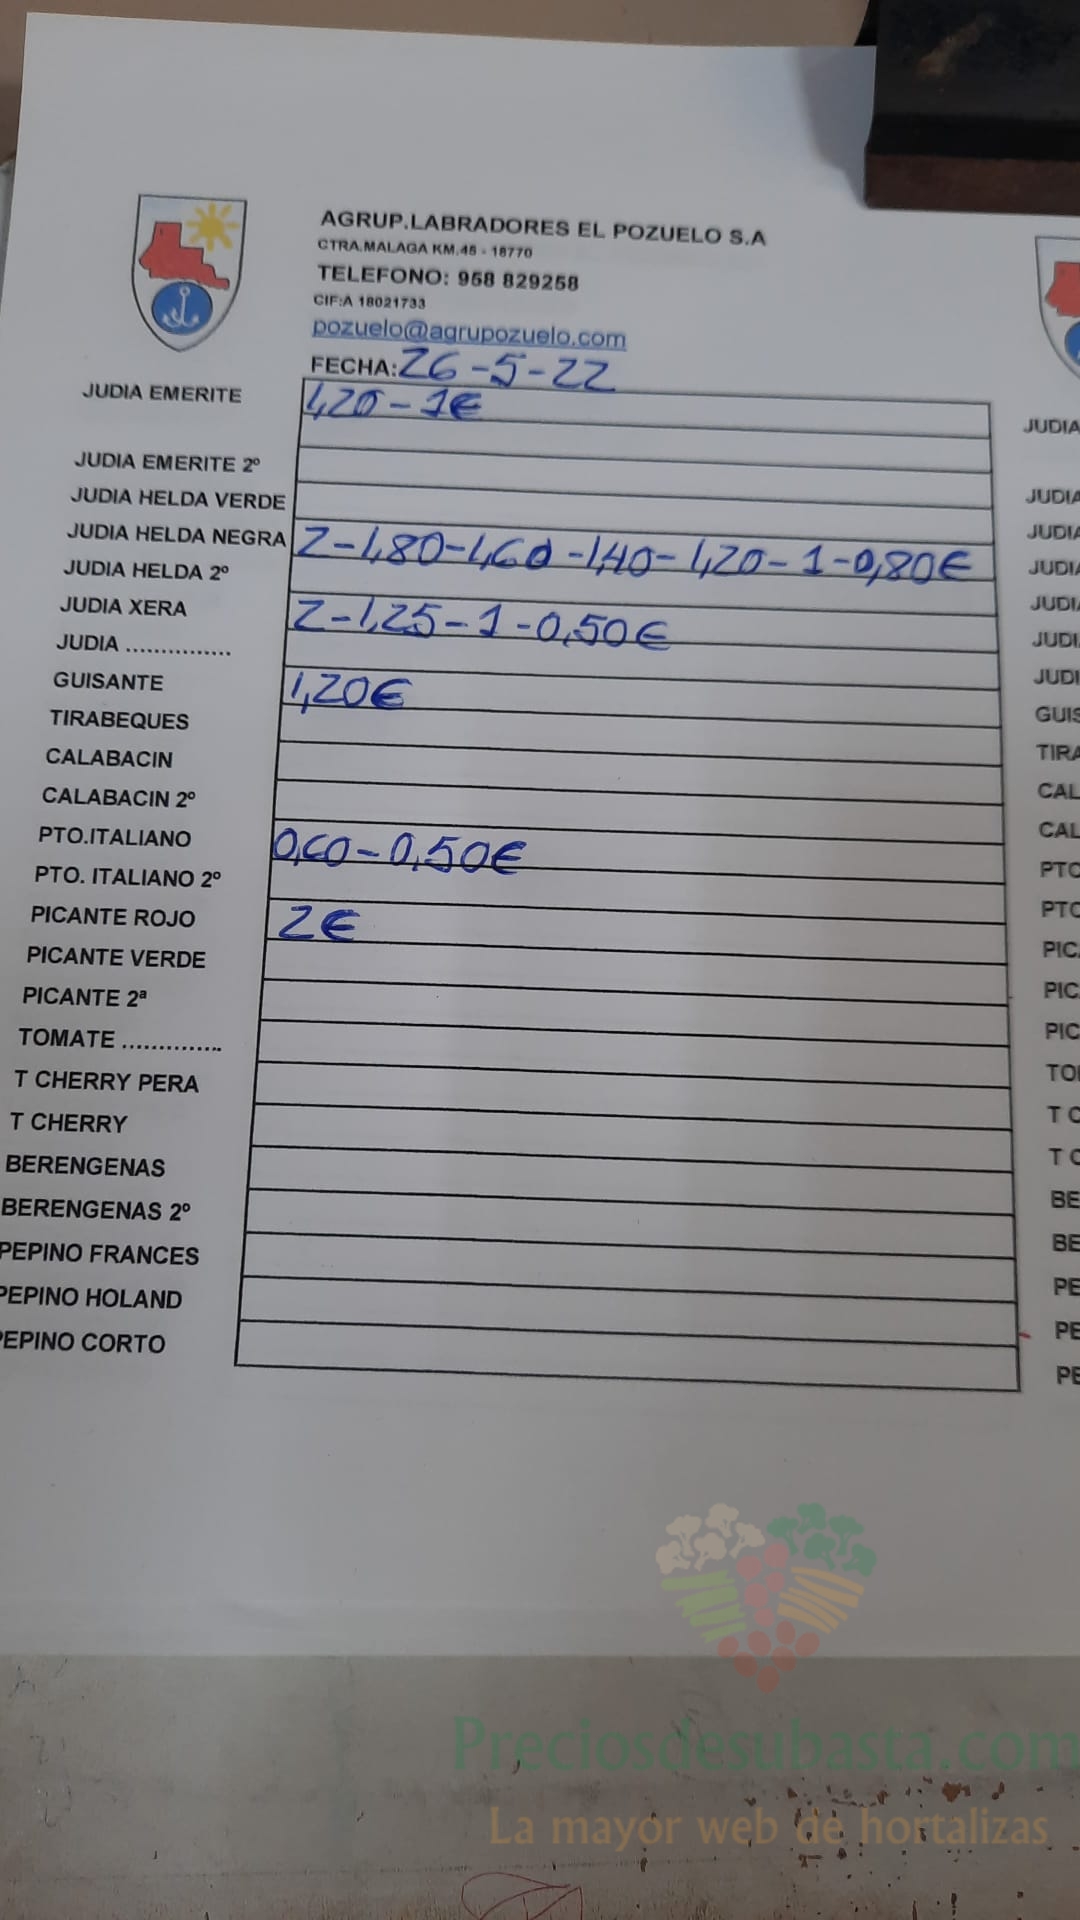 AGRUP.LABRADORES EL POZUELO S.A
CTRA.MALAGA KM.46 - 18770
TELEFONO: 958 829258
CIF:A 18021733
pozuelo@agrupozuelo.com
FECHA: 26-5-22
JUDIA EMERITE 1,20-1€
JUDIA EMERITE 2º
JUDIA HELDA VERDE
JUDIA HELDA NEGRA 2-1,80-1,60-1,40-1,20-1-0,80€
JUDIA HELDA 2º
JUDIA XERA 2-1,25-1-0,50€
JUDIA ...............
GUISANTE 1,20€
TIRABEQUES
CALABACIN
CALABACIN 2º
PTO.ITALIANO 0,60-0,50€
PTO. ITALIANO 2º
PICANTE ROJO 2€
PICANTE VERDE
PICANTE 2ª
TOMATE ..............
T CHERRY PERA
T CHERRY
BERENGENAS
BERENGENAS 2º
PEPINO FRANCES
PEPINO HOLAND
PEPINO CORTO
JUDIA
JUDIA
JUDIA
JUDIA
JUDIA
JUDI
JUDI
GUIS
TIRA
CAL
CAL
PTO
PTO
PIC
PIC
PIC
TO
T C
T C
BE
BE
PE
PE
PE
Preciosdesubasta.com
La mayor web de hortalizas